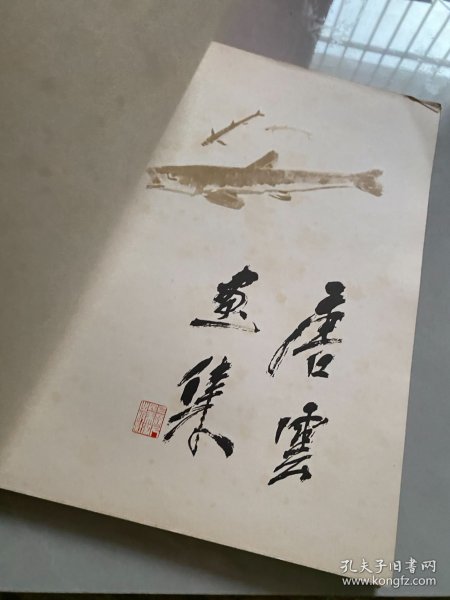 唐雲
画集
孔夫子旧书网
www.kongfz.com